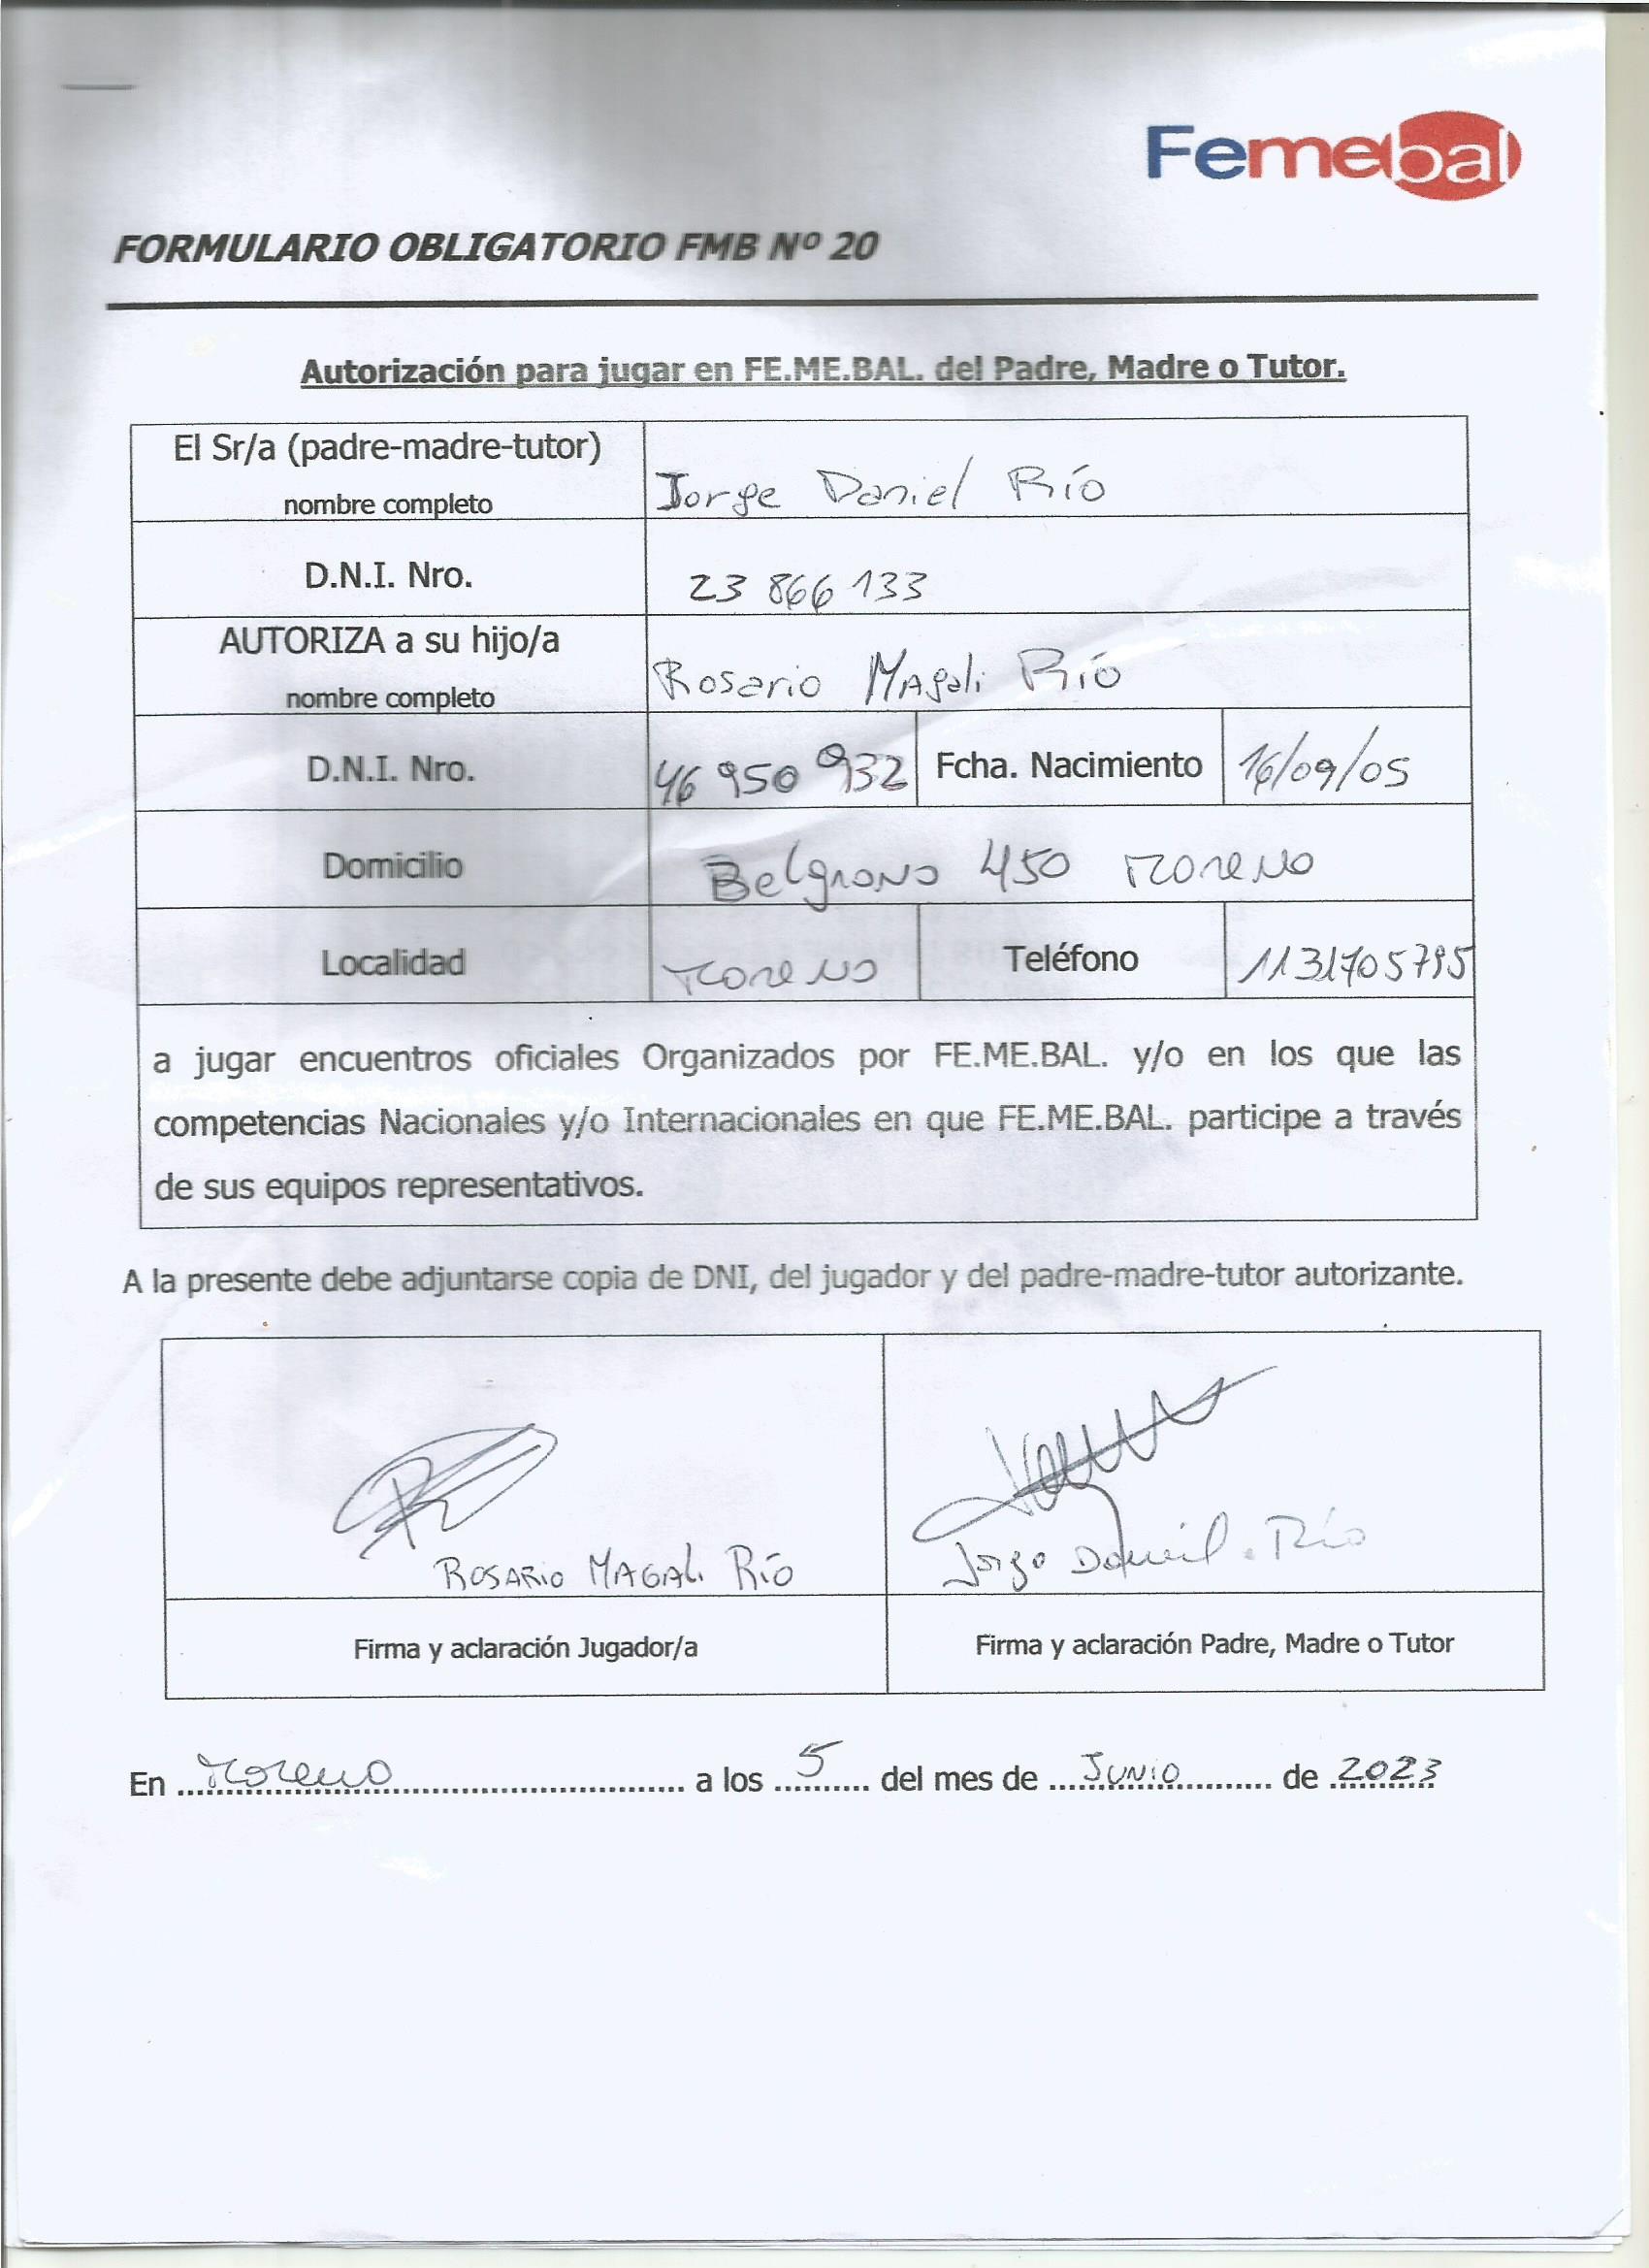 Femebal
FORMULARIO OBLIGATORIO FMB Nº 20
Autorización para jugar en FE.ME.BAL. del Padre, Madre o Tutor.
El Sr/a (padre-madre-tutor)
nombre completo
Jorge Daniel Río
D.N.I. Nro.
23 866 133
AUTORIZA a su hijo/a
nombre completo
Rosario Magali Río
D.N.I. Nro.
46 950 932
Fcha. Nacimiento
16/09/05
Domicilio
Belgrano 450 Moreno
Localidad
Moreno
Teléfono
1131705795
a jugar encuentros oficiales Organizados por FE.ME.BAL. y/o en los que las
competencias Nacionales y/o Internacionales en que FE.ME.BAL. participe a través
de sus equipos representativos.
A la presente debe adjuntarse copia de DNI, del jugador y del padre-madre-tutor autorizante.
ROSARIO MAGALI RÍO
Jorge Daniel Río
Firma y aclaración Jugador/a
Firma y aclaración Padre, Madre o Tutor
En Moreno a los 5 del mes de Junio de 2023